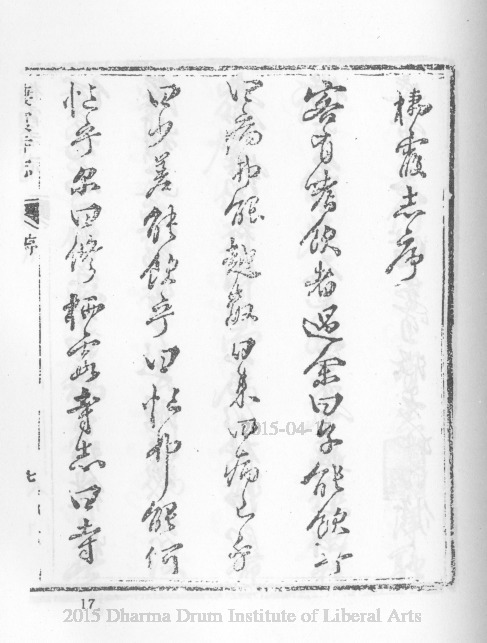 棲霞志序
客有耆飲者過余曰子能飲乎
曰病弗能越數日來曰病已乎
曰少差能飲乎曰忙弗能何
忙乎余曰修栖霞寺志曰寺
序
七
17
2015-04-1
2015 Dharma Drum Institute of Liberal Arts